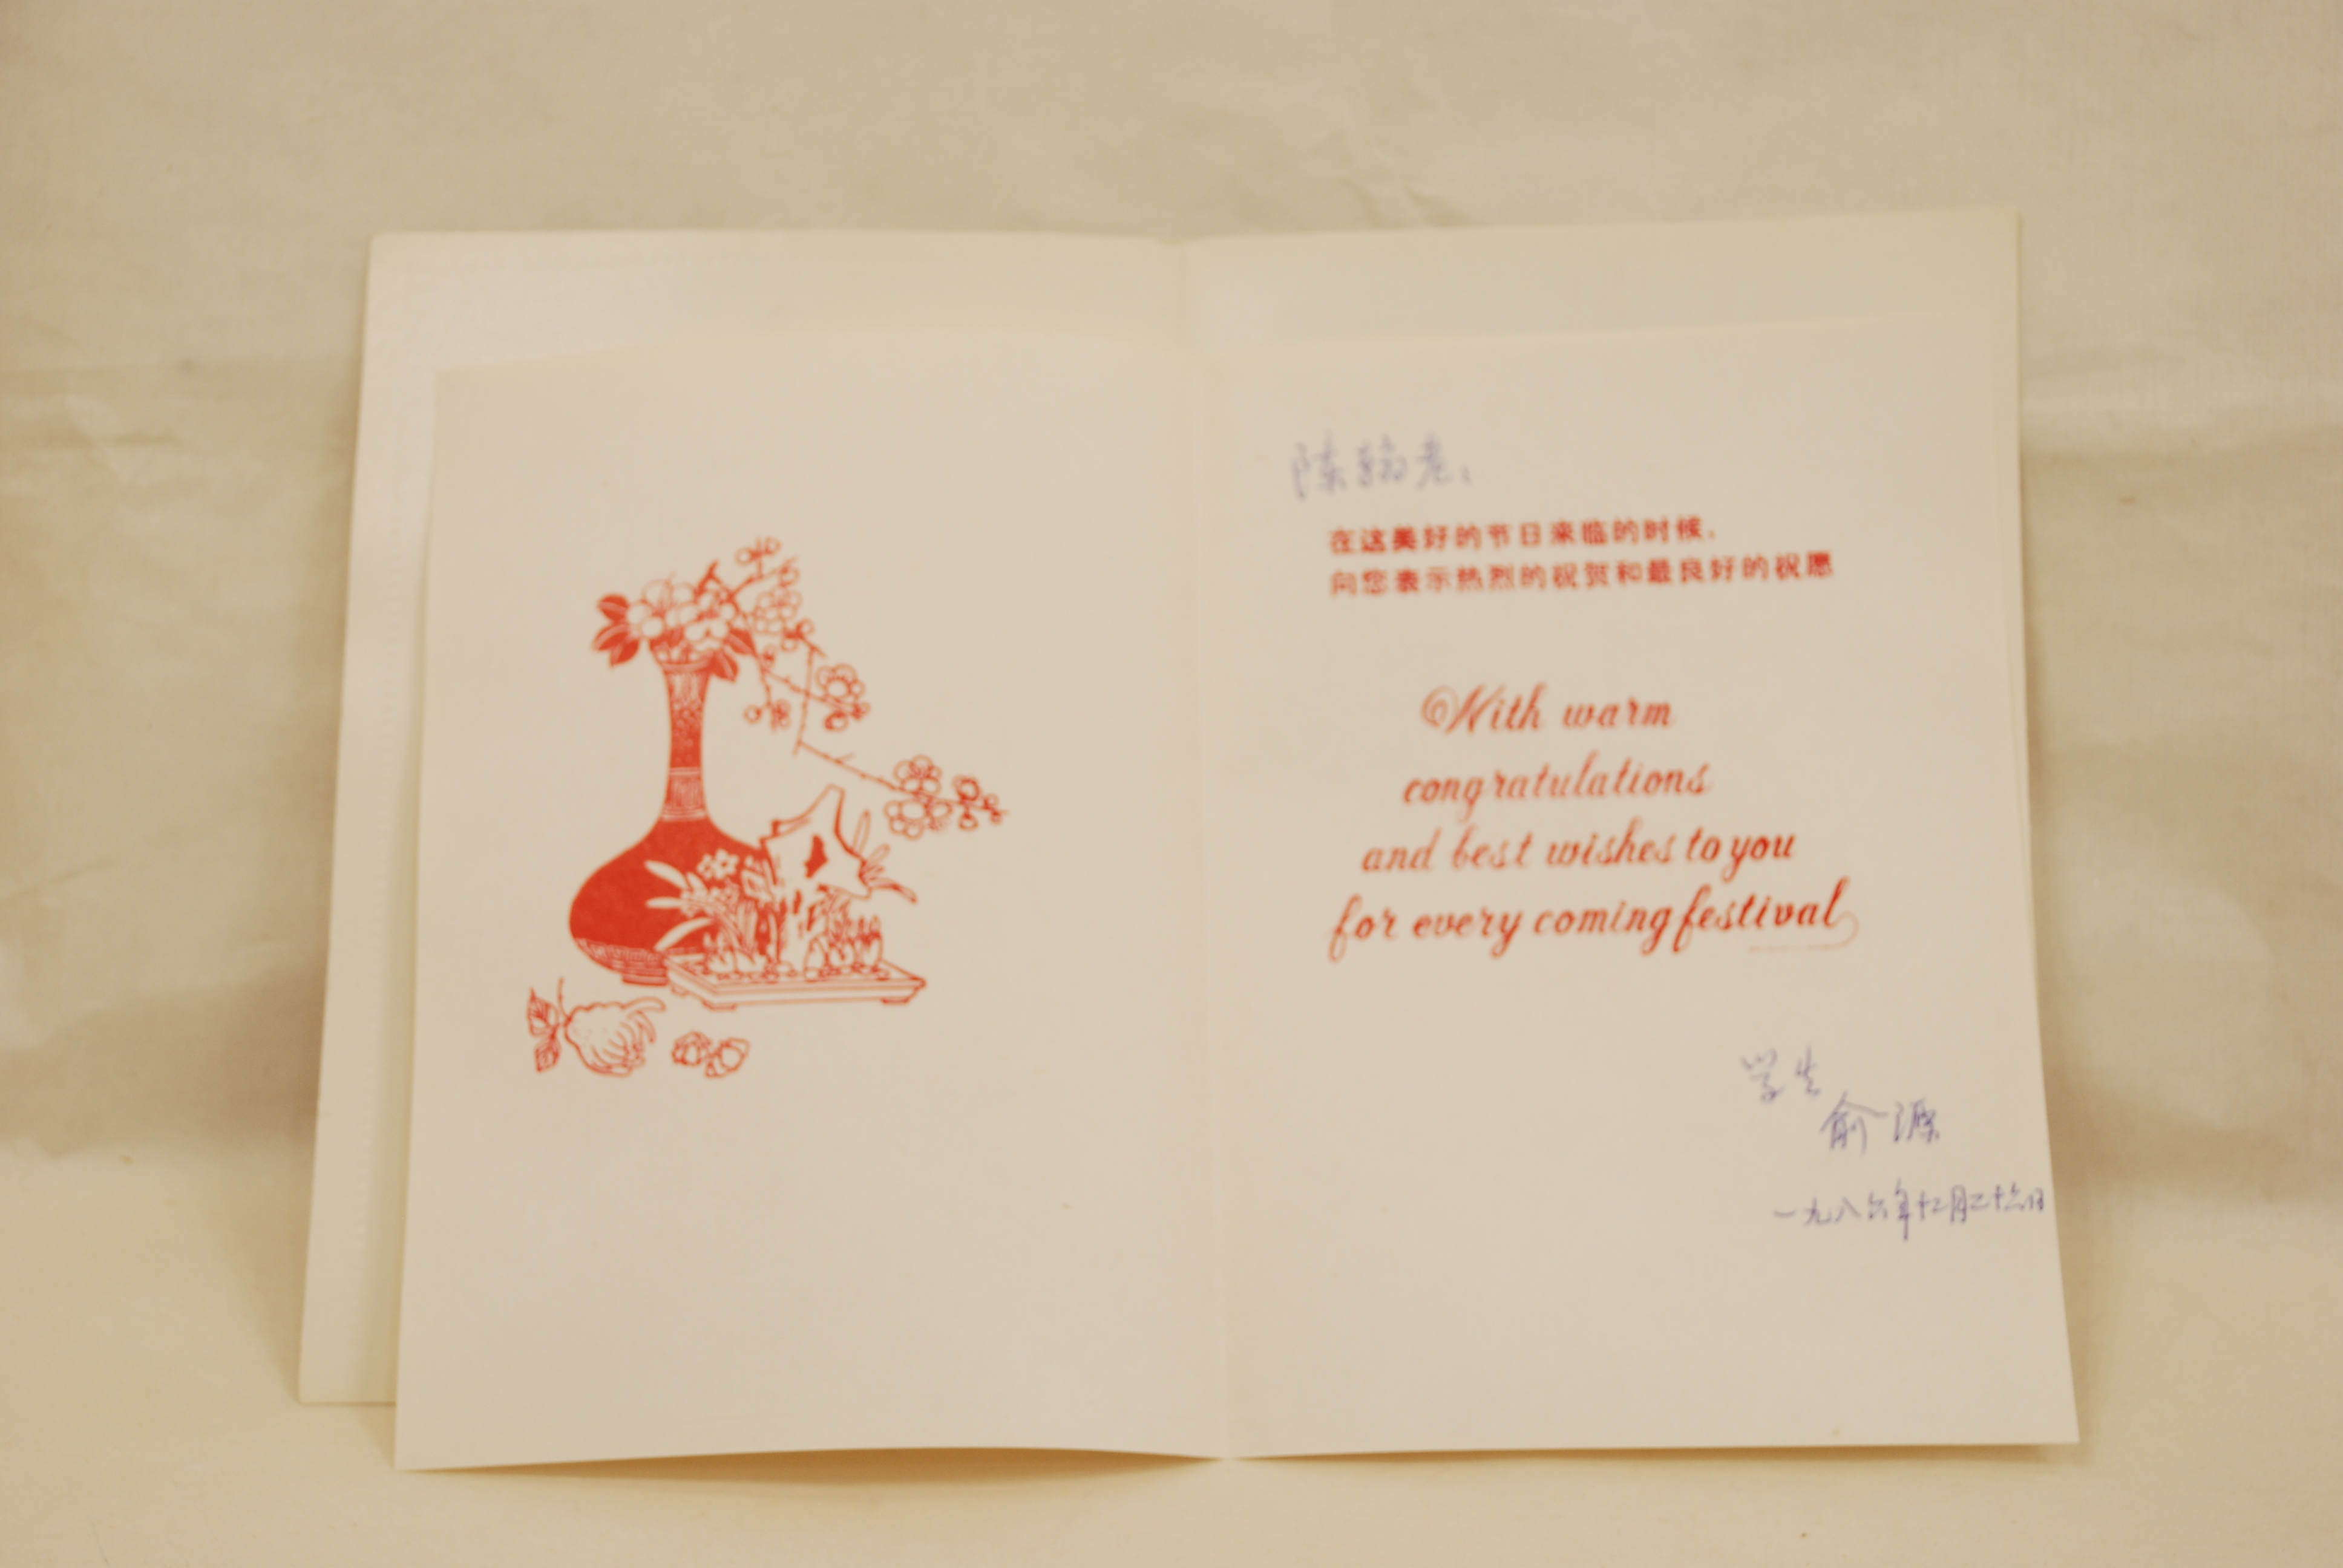 陈翰老：
在这美好的节日来临的时候，
向您表示热烈的祝贺和最良好的祝愿
With warm
congratulations
and best wishes to you
for every coming festival
学生
俞源
一九八六年十二月二十六日